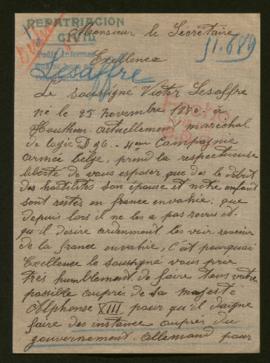 REPATRIACIÓN
CIVIL
Monsieur le Secrétaire
31.689
Excellence
Lesaffre
Le soussigné Victor Lesaffre
né le 25 novembre à
Houthem actuellement maréchal
de logis D 96. 4eme Campagne
armée belge, prend la respectueuse
liberté de vous exposer que dès le début
des hostilités son épouse et notre enfant
sont restés en france envahie, que
depuis lors il ne les a pas revus et
qu'il desire ardemment les voir revenir
de la france envahie, C'est pourquoi
Excellence le soussigné vous prie
très humblement de faire tout votre
possible auprès de sa majesté
Alphonse XIII pour qu'il daigne
faire des instance auprès du
gouvernement allemand pour